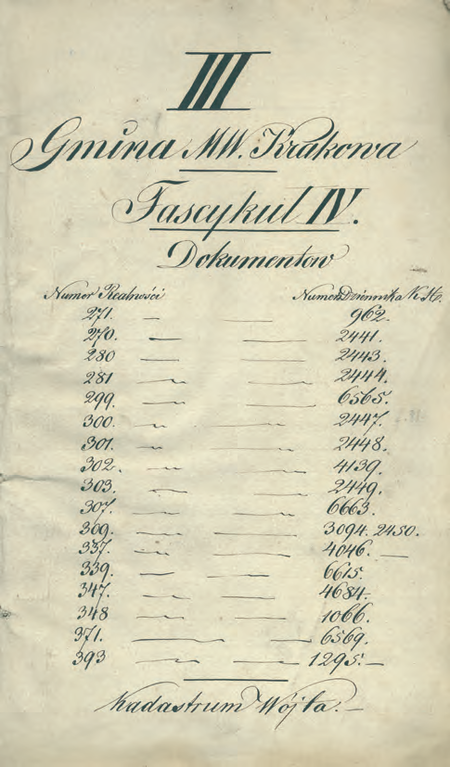 III
Gmina M.W. Krakowa
Fascykuł IV.
Dokumentow
Numer Realności Numer Dziennika K. H.
271. — — 962.
270. — — 2441.
280 — — 2443.
281 — — 2444.
299. — — 6565.
300. — — 2447.
301. — — 2448.
302. — — 4139.
303. — — 2449.
307. — — 6663.
309. — — 3094. 2450.
337. — — 4046. —
339. — — 6615.
347. — — 4684.
348 — — 1066.
371. — — 6569.
393 — — 1295. —
Kadastrum Wójta. —